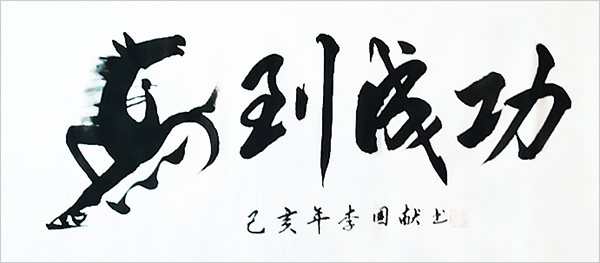 马到成功
己亥年李国献书